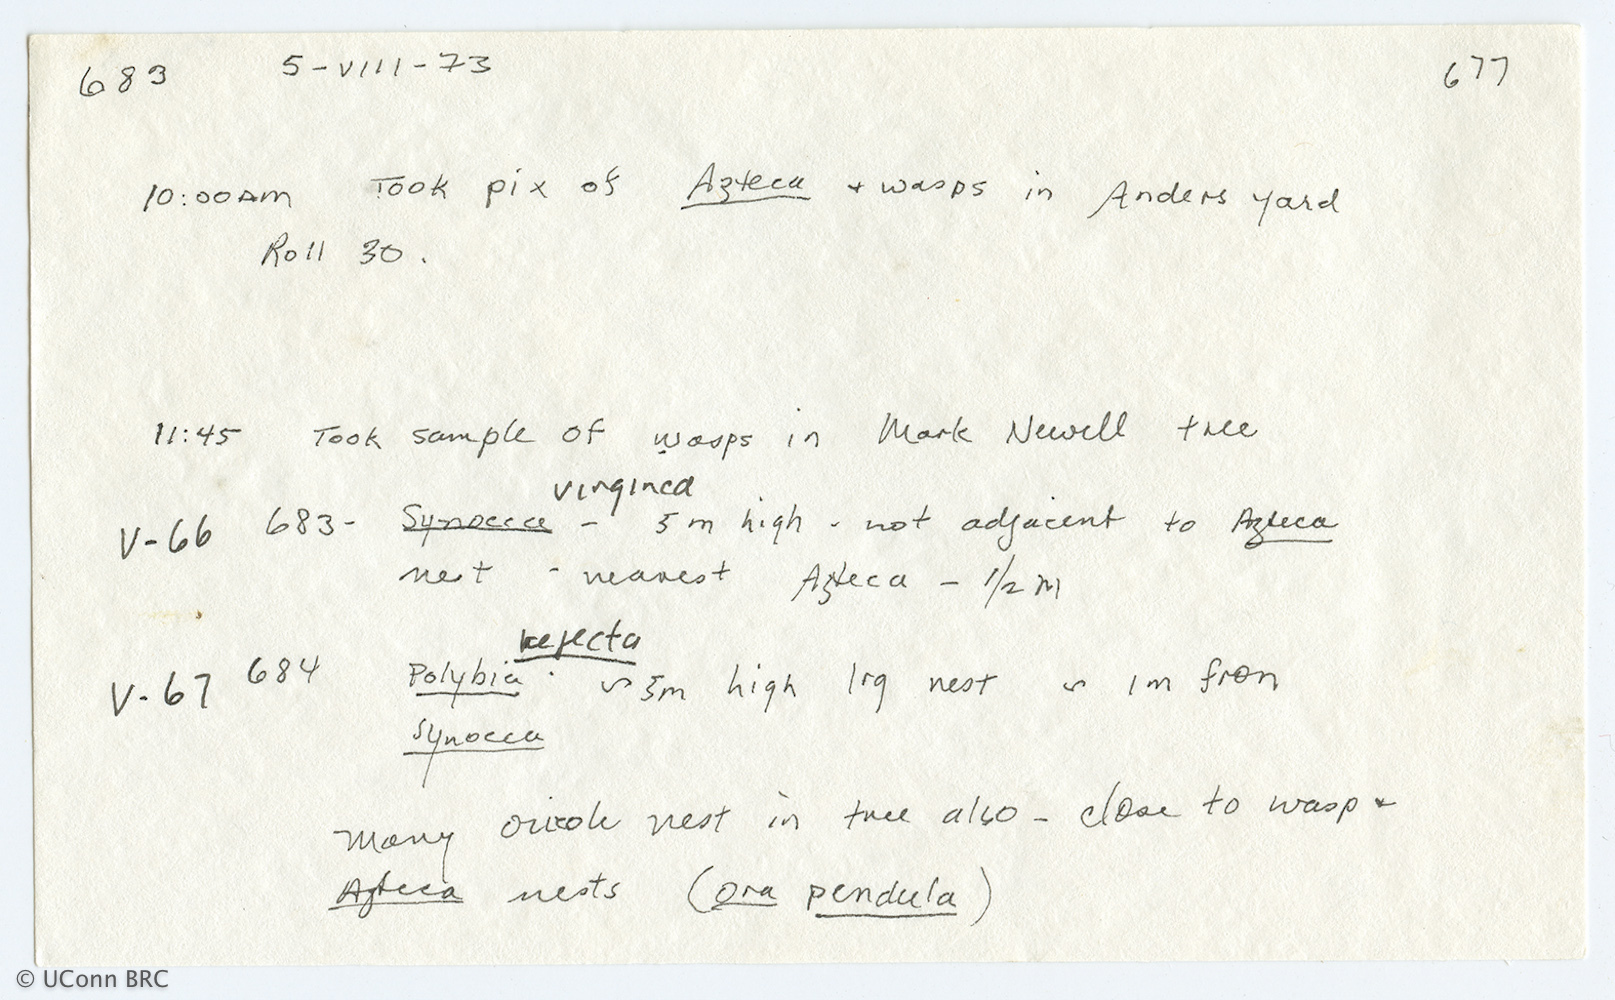 683 5-VIII-73 677
10:00AM Took pix of Azteca + wasps in Anders yard
Roll 30.
11:45 Took sample of wasps in Mark Newell tree
virginea
V-66 683- Synoeca - 5m high - not adjacent to Azteca
nest - nearest Azteca - 1/2 m
rejecta
V-67 684 Polybia - ~5m high lrg nest ~ 1m from
Synoeca
Many oriole nest in tree also - close to wasp +
Azteca nests (ora pendula)
© UConn BRC